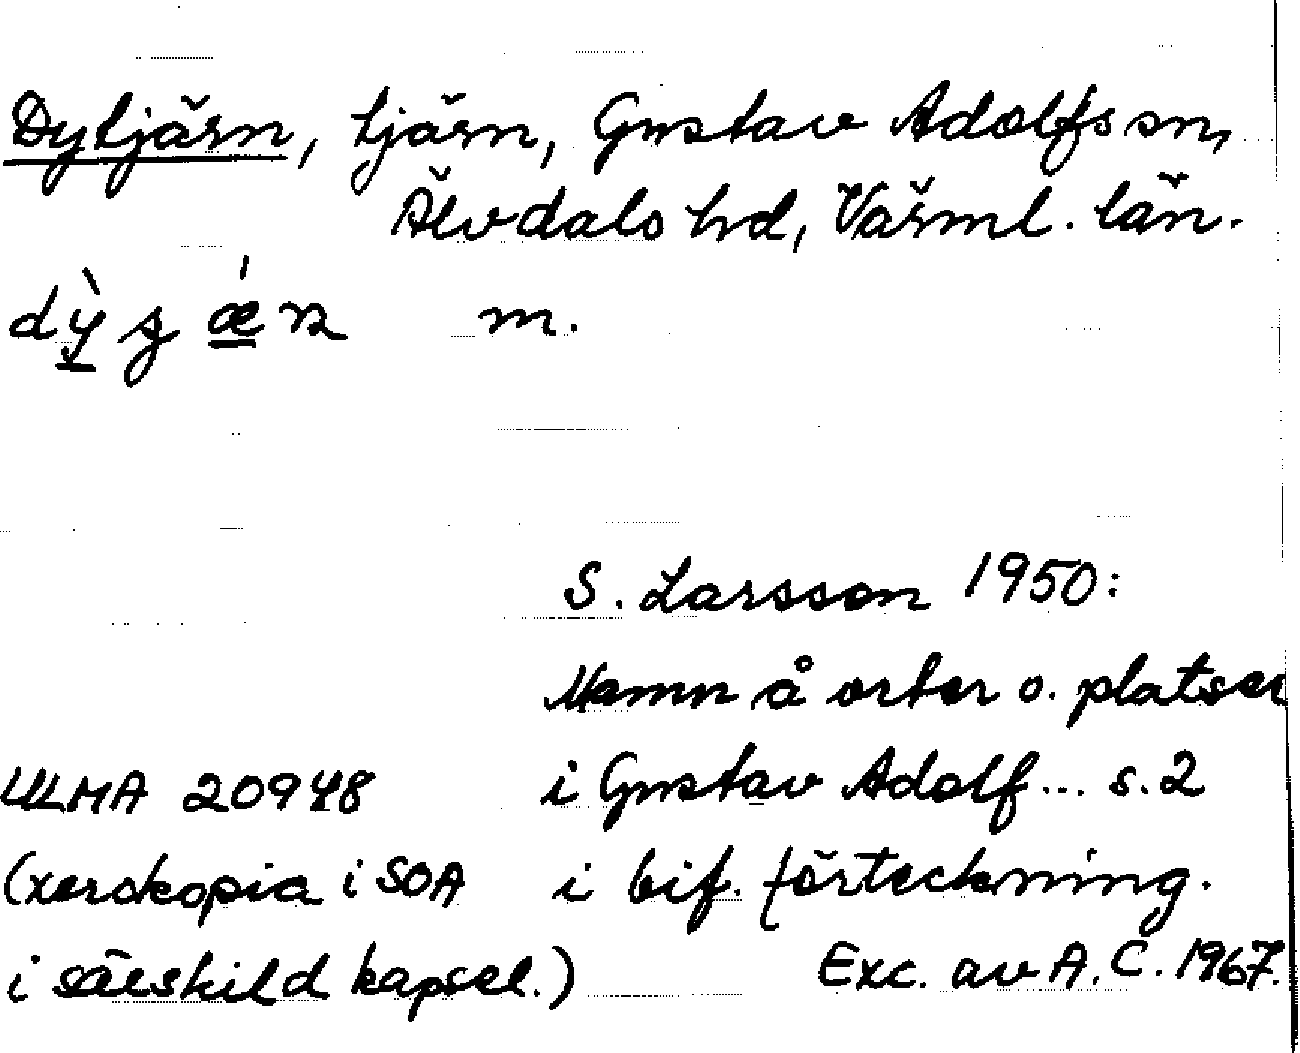 Dytjärn, tjärn, Gustav Adolfs sn,
Älvdals hd, Värml. län.
dỳʂǽn m.
S. Larsson 1950:
Namn å orter o. platser
i Gustav Adolf... s. 2
i bif. förteckning.
ULMA 20948
(xerokopia i SOA
i särskild kapsel.)
Exc. av A. C. 1967.